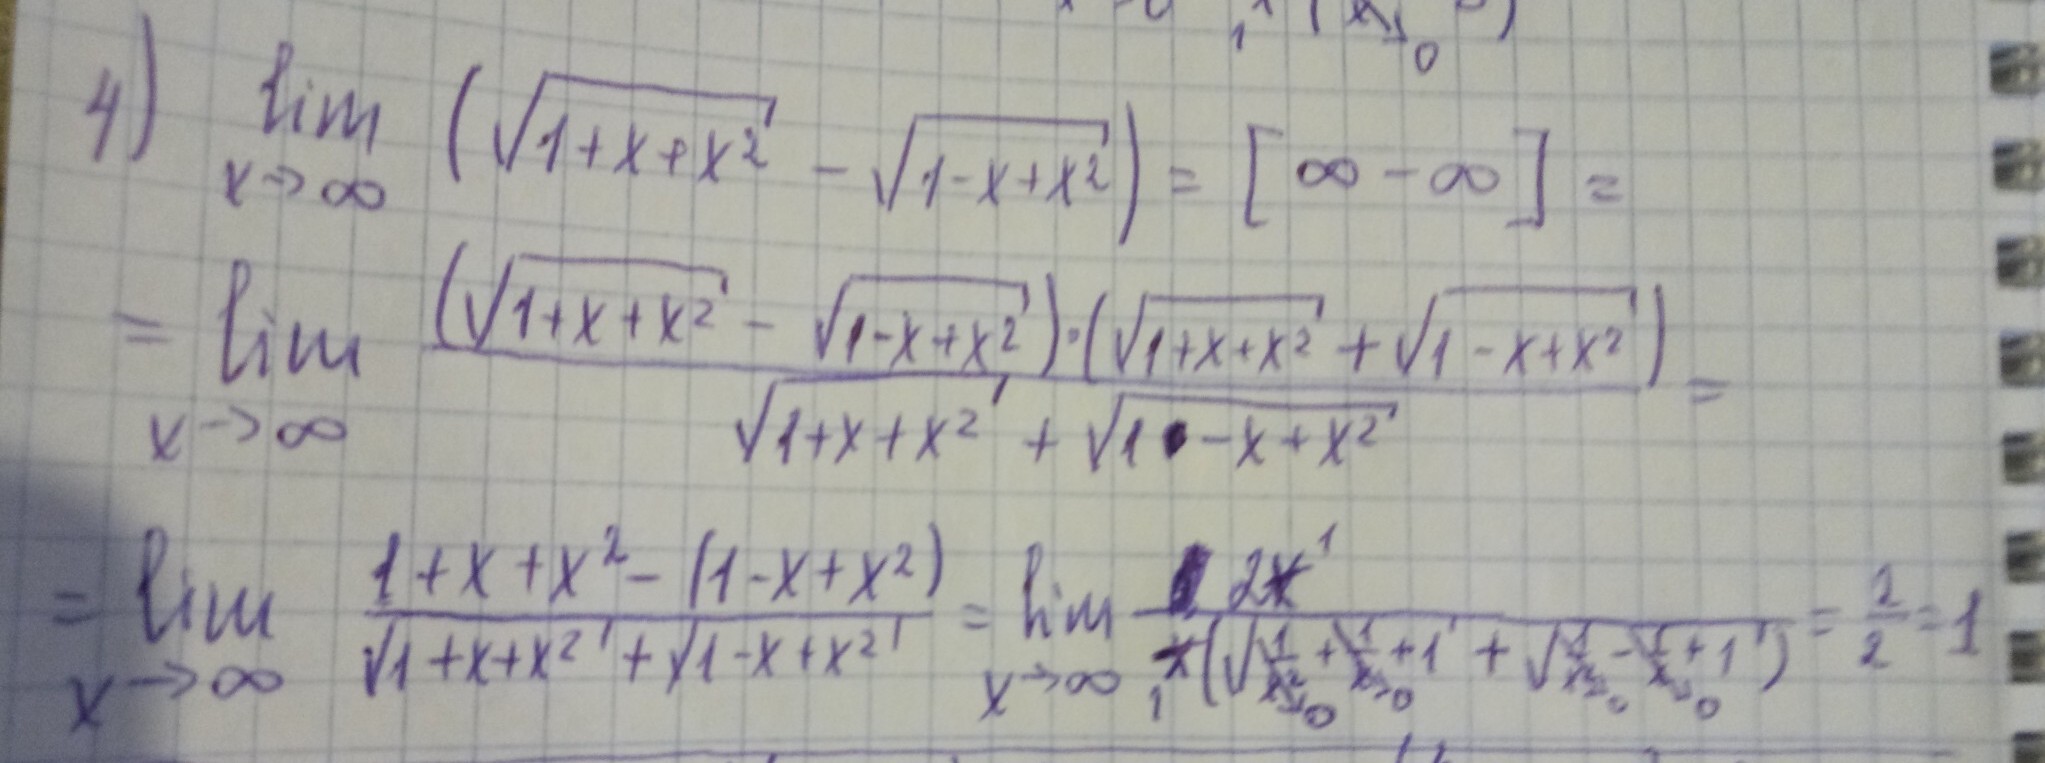 4) lim x→∞ (√(1+x+x²) − √(1−x+x²)) = [∞ − ∞] =
= lim x→∞ (√(1+x+x²) − √(1−x+x²))·(√(1+x+x²) + √(1−x+x²)) / (√(1+x+x²) + √(1−x+x²)) =
= lim x→∞ (1+x+x²−(1−x+x²)) / (√(1+x+x²) + √(1−x+x²)) = lim x→∞ 2x / (x(√(1/x²+1/x+1) + √(1/x²−1/x+1))) = 2/2 = 1